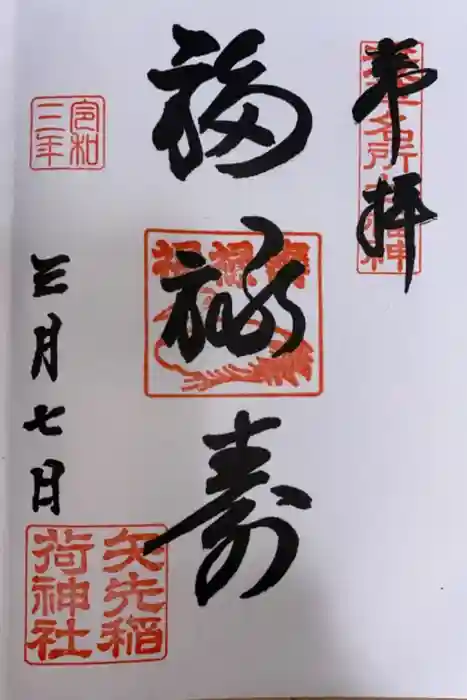 奉拝
福
禄
寿
福禄寿
令和
三年
三月七日
矢先稲
荷神社